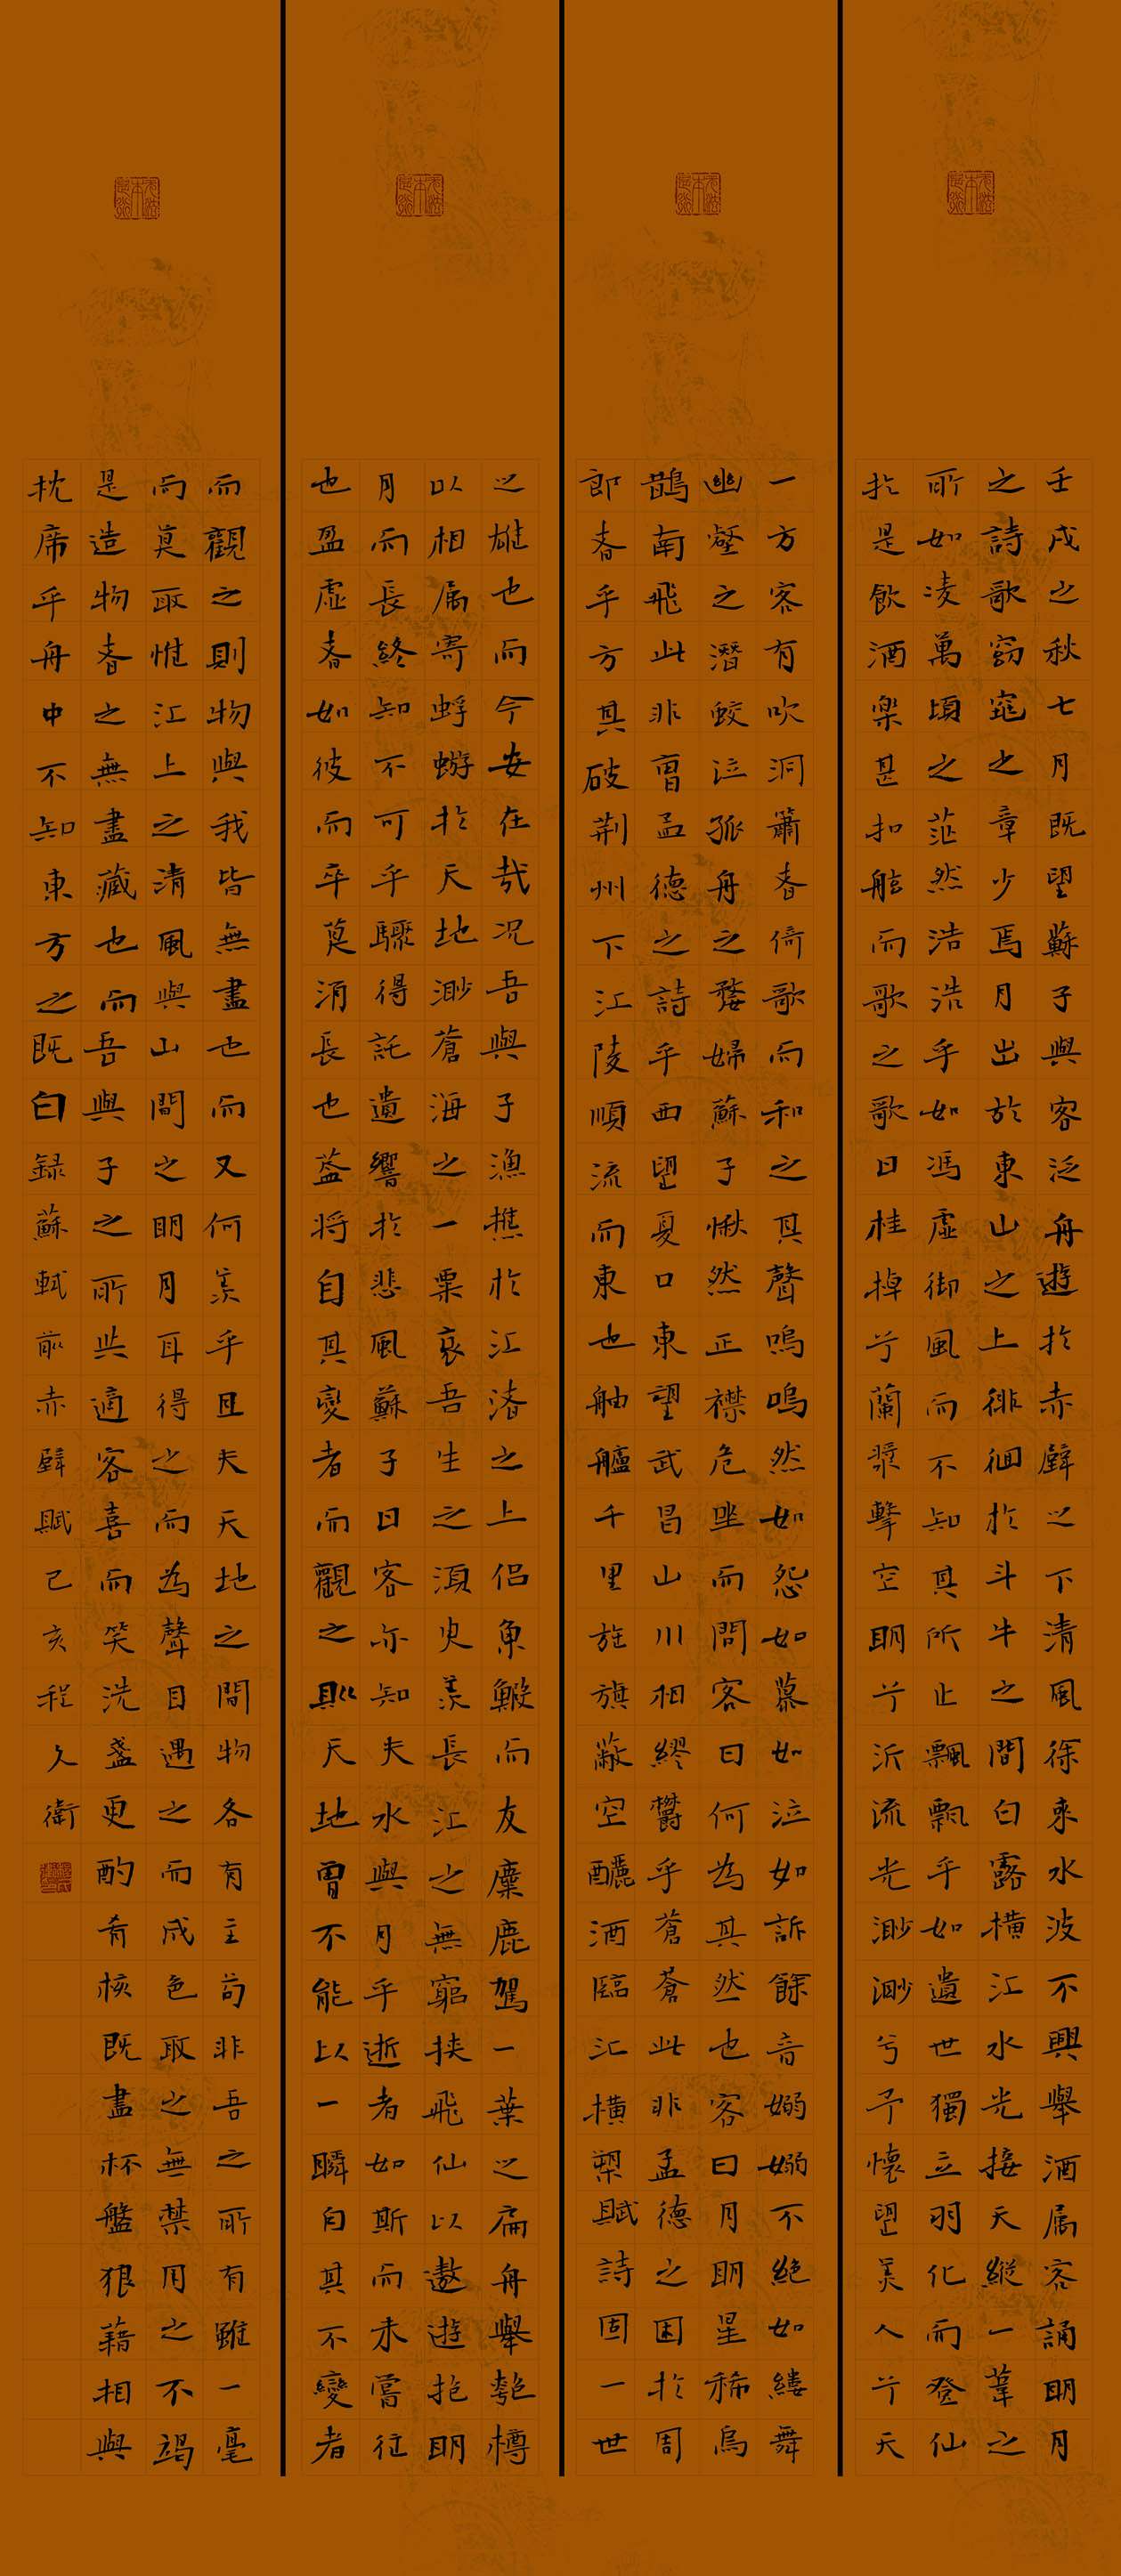 壬戌之秋七月既望蘇子與客泛舟遊於赤壁之下清風徐來水波不興舉酒属客誦明月
之詩歌窈窕之章少焉月出於東山之上徘徊於斗牛之間白露橫江水光接天縱一葦之
所如凌萬頃之茫然浩浩乎如馮虛御風而不知其所止飄飄乎如遺世獨立羽化而登仙
於是飲酒樂甚扣舷而歌之歌曰桂棹兮蘭槳擊空明兮泝流光渺渺兮予懷望美人兮天
一方客有吹洞簫者倚歌而和之其聲嗚嗚然如怨如慕如泣如訴餘音嫋嫋不絕如縷舞
幽壑之潛蛟泣孤舟之嫠婦蘇子愀然正襟危坐而問客曰何為其然也客曰月明星稀烏
鵲南飛此非曹孟德之詩乎西望夏口東望武昌山川相繆鬱乎蒼蒼此非孟德之困於周
郎者乎方其破荊州下江陵順流而東也舳艫千里旌旗蔽空釃酒臨江橫槊賦詩固一世
之雄也而今安在哉况吾與子漁樵於江渚之上侶魚鰕而友麋鹿駕一葉之扁舟舉匏樽
以相属寄蜉蝣於天地渺蒼海之一粟哀吾生之須臾羨長江之無窮挟飛仙以遨遊抱明
月而長終知不可乎驟得託遺響於悲風蘇子曰客亦知夫水與月乎逝者如斯而未嘗往
也盈虛者如彼而卒莫消長也蓋将自其變者而觀之則天地曾不能以一瞬自其不變者
而觀之則物與我皆無盡也而又何羨乎且夫天地之間物各有主苟非吾之所有雖一毫
而莫取惟江上之清風與山間之明月耳得之而為聲目遇之而成色取之無禁用之不竭
是造物者之無盡藏也而吾與子之所共適客喜而笑洗盞更酌肴核既盡杯盤狼藉相與
枕席乎舟中不知東方之既白録蘇軾前赤壁賦己亥程久衛